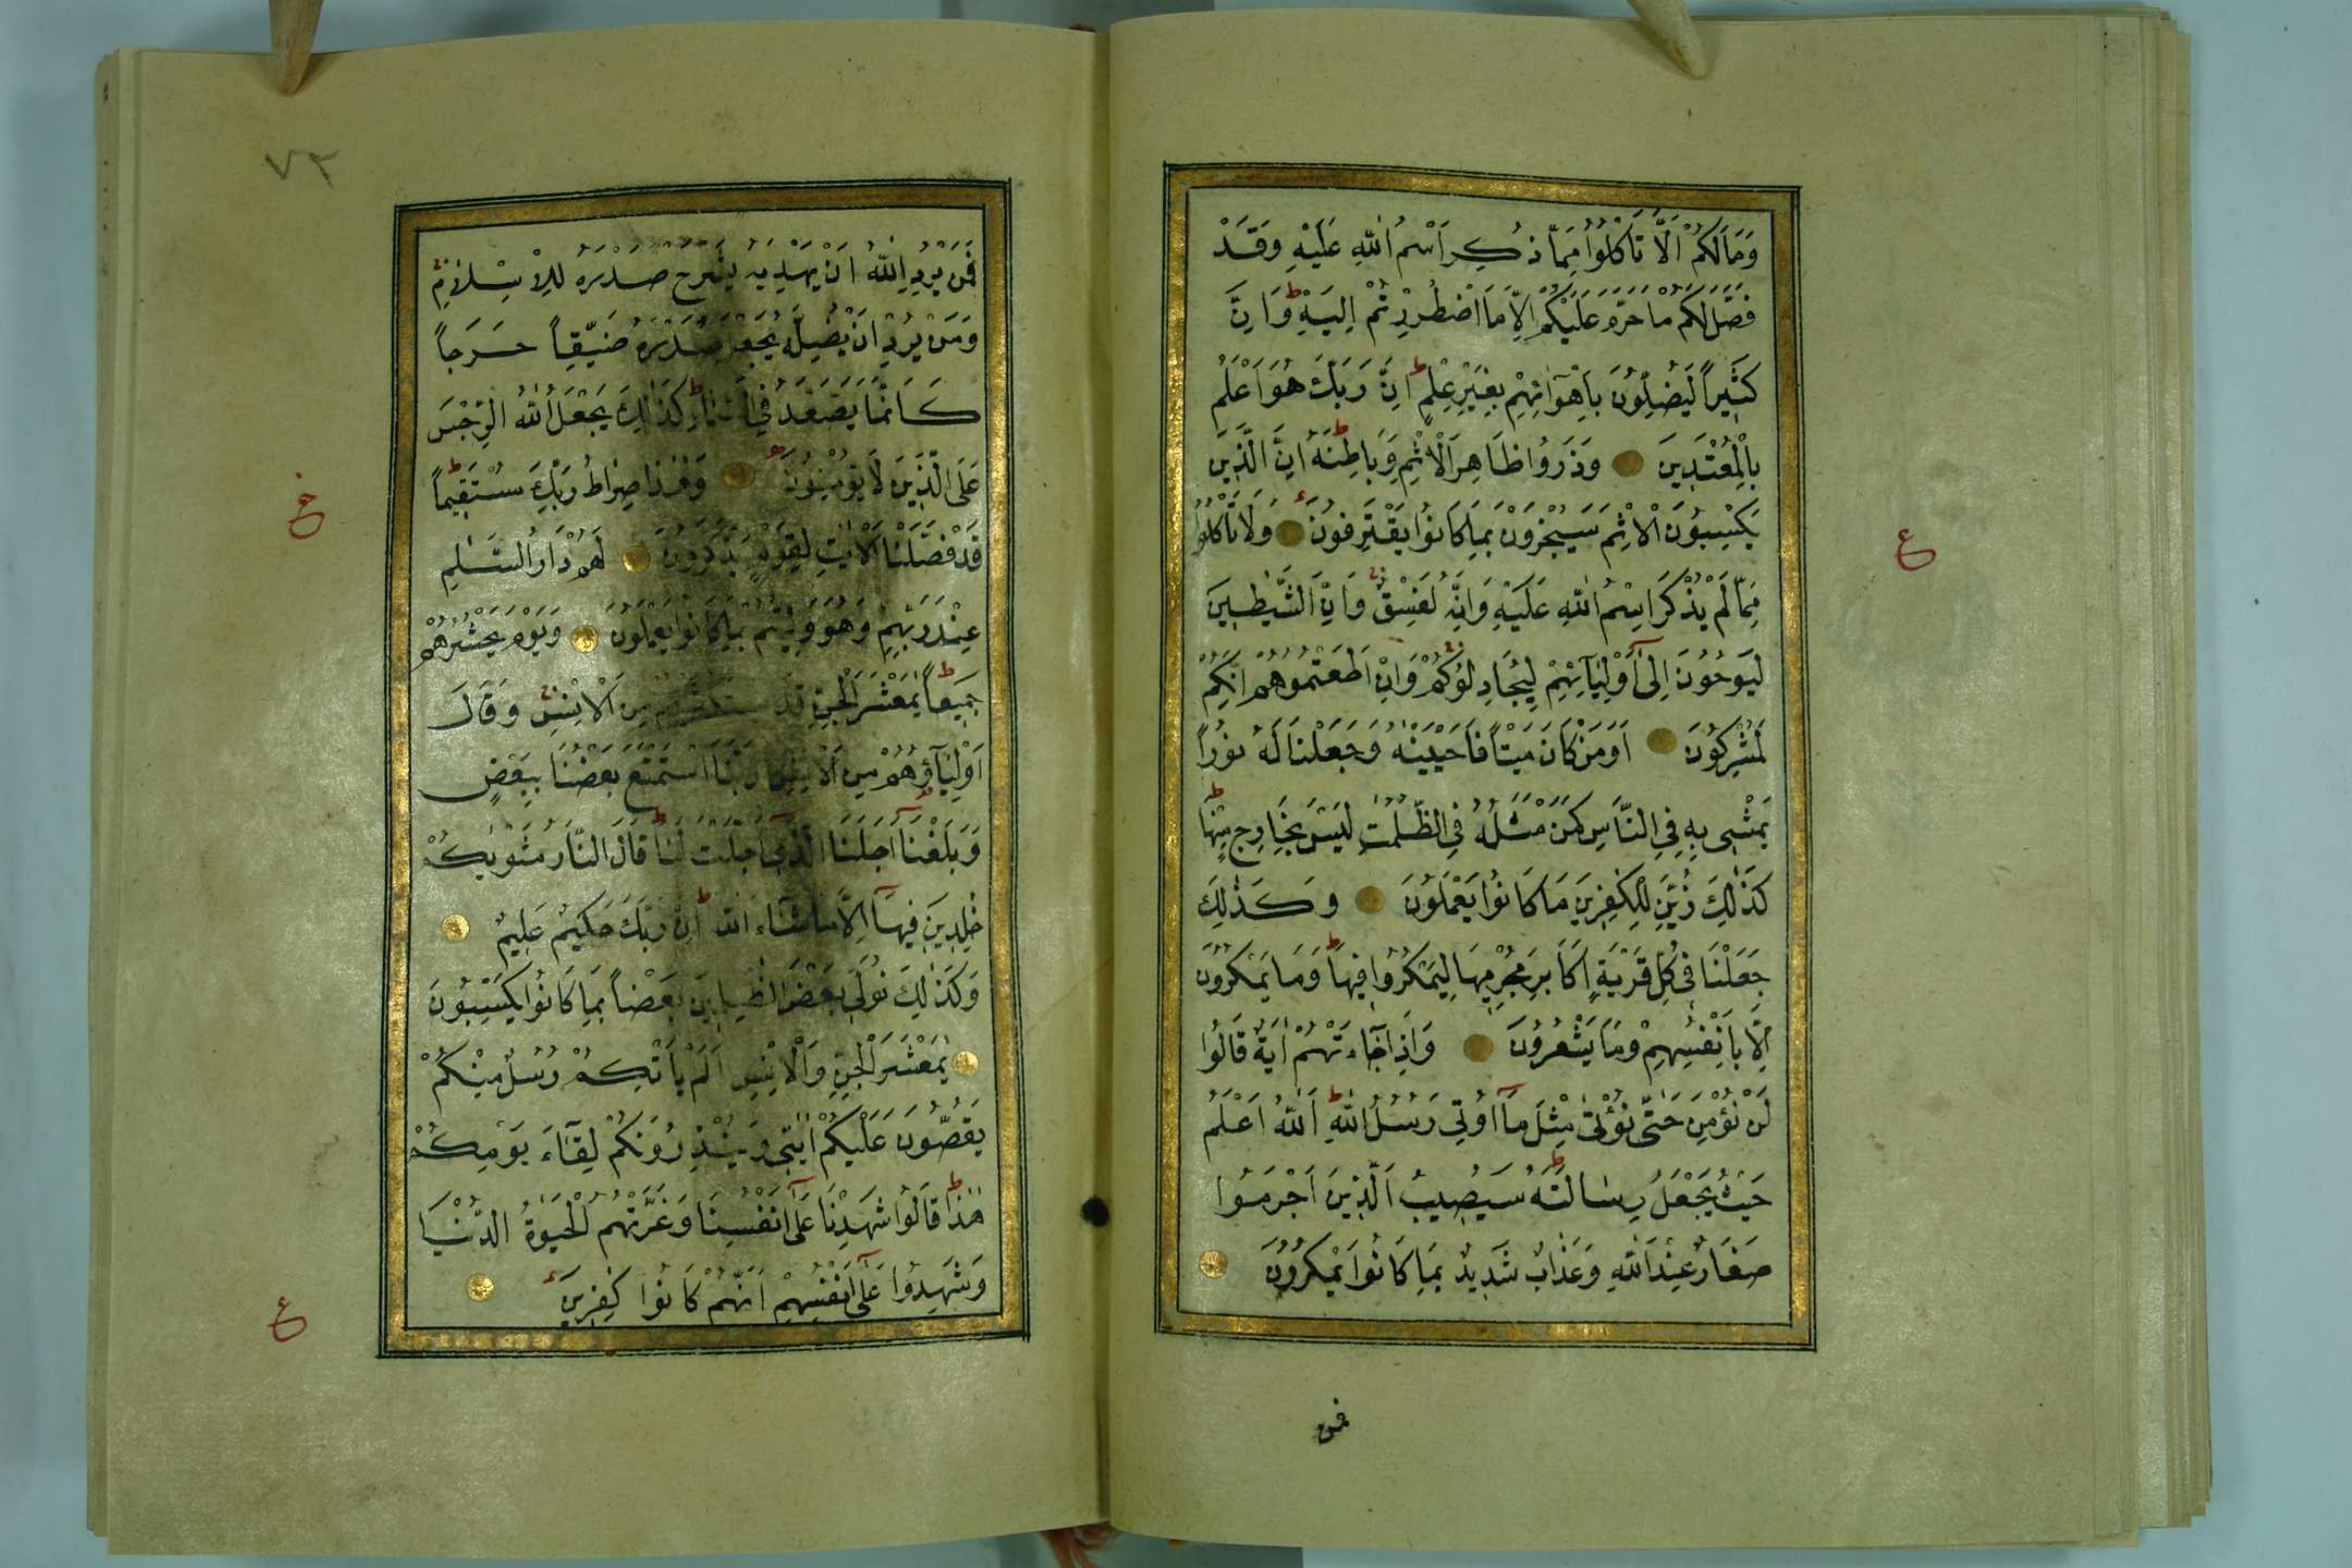 وَمَا لَكُمْ اَلَّا تَأْكُلُوا مِمَّا ذُكِرَ اسْمُ اللّٰهِ عَلَيْهِ وَقَدْ
فَصَّلَ لَكُمْ مَا حَرَّمَ عَلَيْكُمْ اِلَّا مَا اضْطُرِرْتُمْ اِلَيْهِ ط وَاِنَّ
كَثِيراً لَيُضِلُّونَ بِاَهْوَائِهِمْ بِغَيْرِ عِلْمٍ ط اِنَّ رَبَّكَ هُوَ اَعْلَمُ
بِالْمُعْتَدِينَ وَذَرُوا ظَاهِرَ الْاِثْمِ وَبَاطِنَهُ ط اِنَّ الَّذِينَ
يَكْسِبُونَ الْاِثْمَ سَيُجْزَوْنَ بِمَا كَانُوا يَقْتَرِفُونَ وَلَا تَأْكُلُوا
مِمَّا لَمْ يُذْكَرِ اسْمُ اللّٰهِ عَلَيْهِ وَاِنَّهُ لَفِسْقٌ وَاِنَّ الشَّيٰطِينَ
لَيُوحُونَ اِلٰى اَوْلِيَآئِهِمْ لِيُجَادِلُوكُمْ وَاِنْ اَطَعْتُمُوهُمْ اِنَّكُمْ
لَمُشْرِكُونَ اَوَمَنْ كَانَ مَيْتاً فَاَحْيَيْنٰهُ وَجَعَلْنَا لَهُ نُوراً
يَمْشِى بِهِ فِي النَّاسِ كَمَنْ مَثَلُهُ فِي الظُّلُمٰتِ لَيْسَ بِخَارِجٍ مِنْهَا ط
كَذٰلِكَ زُيِّنَ لِلْكٰفِرِينَ مَا كَانُوا يَعْمَلُونَ وَكَذٰلِكَ
جَعَلْنَا فِي كُلِّ قَرْيَةٍ اَكَابِرَ مُجْرِمِيهَا لِيَمْكُرُوا فِيهَا ط وَمَا يَمْكُرُونَ
اِلَّا بِاَنْفُسِهِمْ وَمَا يَشْعُرُونَ وَاِذَا جَاءَتْهُمْ اٰيَةٌ قَالُوا
لَنْ نُؤْمِنَ حَتّٰى نُؤْتٰى مِثْلَ مَآ اُوتِيَ رُسُلُ اللّٰهِ ط اَللّٰهُ اَعْلَمُ
حَيْثُ يَجْعَلُ رِسَالَتَهُ ط سَيُصِيبُ الَّذِينَ اَجْرَمُوا
صَغَارٌ عِنْدَ اللّٰهِ وَعَذَابٌ شَدِيدٌ بِمَا كَانُوا يَمْكُرُونَ
فمن
ع
٧٢
فَمَنْ يُرِدِ اللّٰهُ اَنْ يَهْدِيَهُ يَشْرَحْ صَدْرَهُ لِلْاِسْلَامِ
وَمَنْ يُرِدْ اَنْ يُضِلَّهُ يَجْعَلْ صَدْرَهُ ضَيِّقاً حَرَجاً
كَاَنَّمَا يَصَّعَّدُ فِي السَّمَاءِ ط كَذٰلِكَ يَجْعَلُ اللّٰهُ الرِّجْسَ
عَلَى الَّذِينَ لَا يُؤْمِنُونَ وَهٰذَا صِرَاطُ رَبِّكَ مُسْتَقِيماً ط
قَدْ فَصَّلْنَا الْاٰيٰتِ لِقَوْمٍ يَذَّكَّرُونَ لَهُمْ دَارُ السَّلٰمِ
عِنْدَ رَبِّهِمْ وَهُوَ وَلِيُّهُمْ بِمَا كَانُوا يَعْمَلُونَ وَيَوْمَ يَحْشُرُهُمْ
جَمِيعاً ط يٰمَعْشَرَ الْجِنِّ قَدِ اسْتَكْثَرْتُمْ مِنَ الْاِنْسِ وَقَالَ
اَوْلِيَآؤُهُمْ مِنَ الْاِنْسِ رَبَّنَا اسْتَمْتَعَ بَعْضُنَا بِبَعْضٍ
وَبَلَغْنَآ اَجَلَنَا الَّذِي اَجَّلْتَ لَنَا ط قَالَ النَّارُ مَثْوٰيكُمْ
خٰلِدِينَ فِيهَآ اِلَّا مَا شَاءَ اللّٰهُ ط اِنَّ رَبَّكَ حَكِيمٌ عَلِيمٌ
وَكَذٰلِكَ نُوَلِّي بَعْضَ الظَّالِمِينَ بَعْضاً بِمَا كَانُوا يَكْسِبُونَ
يٰمَعْشَرَ الْجِنِّ وَالْاِنْسِ اَلَمْ يَأْتِكُمْ رُسُلٌ مِنْكُمْ
يَقُصُّونَ عَلَيْكُمْ اٰيٰتِي وَيُنْذِرُونَكُمْ لِقَآءَ يَوْمِكُمْ
هٰذَا ط قَالُوا شَهِدْنَا عَلٰٓى اَنْفُسِنَا وَغَرَّتْهُمُ الْحَيٰوةُ الدُّنْيَا
وَشَهِدُوا عَلٰٓى اَنْفُسِهِمْ اَنَّهُمْ كَانُوا كٰفِرِينَ
ع